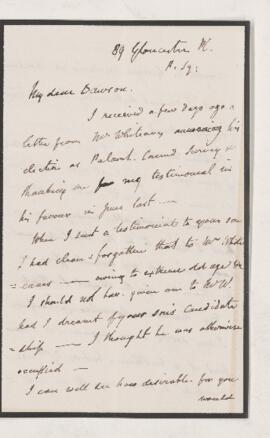 89 Gloucester Pl.
P. Sq:
My dear Dawson.
I received a few days ago a
letter from Mr Whiteaves announcing his
election as Palaeont. Canad Survey &
thanking me for my testimonial in
his favour in June last —
When I sent a testimonial to your son
I had clean forgotten that to Mr White
=eaves — owing to extreme old age &c
I should not have given one to Mr W.
had I dreamt of your son's Candidate
=ship — I thought he was otherwise
occupied —
I can well see how desirable for you
would